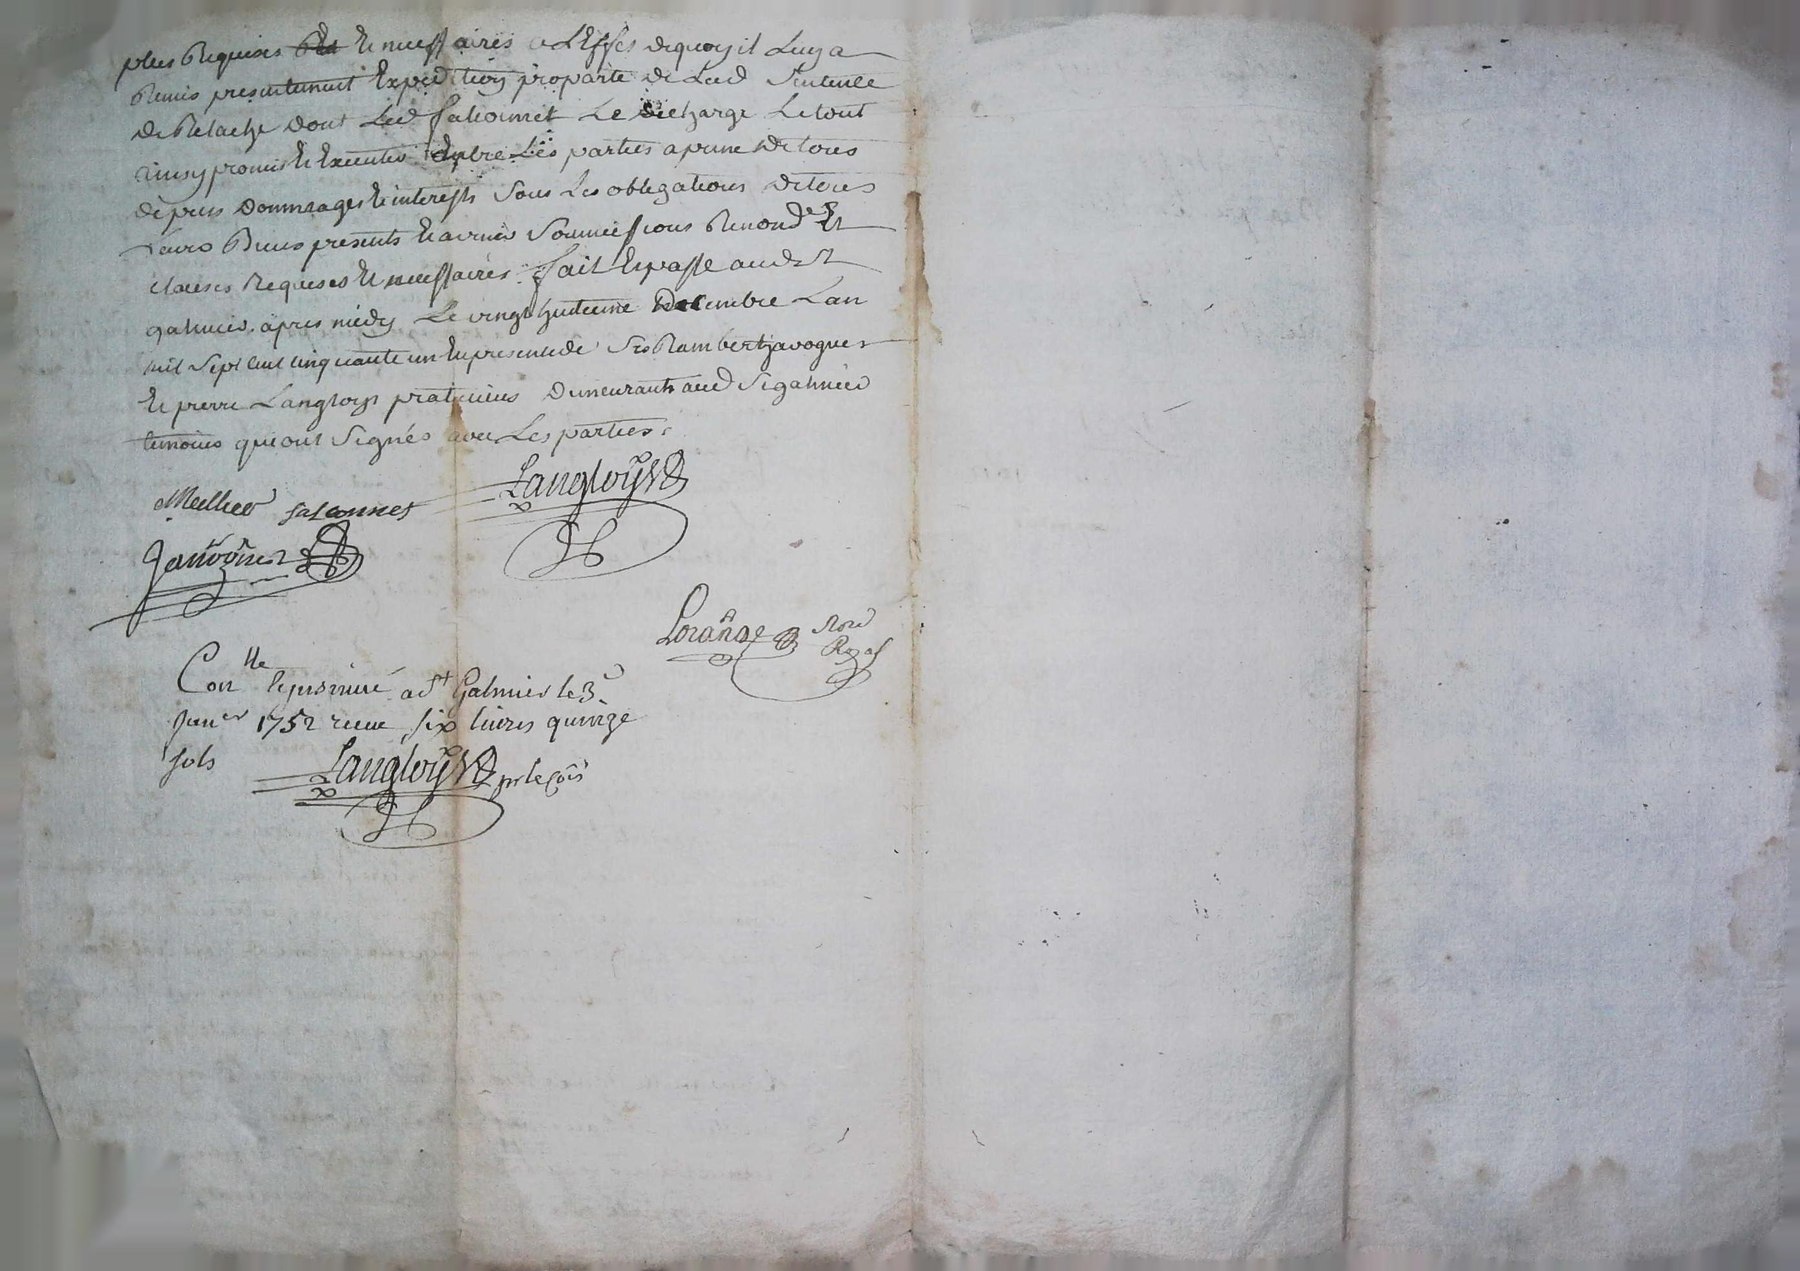 plus Requises Et necessaires a L'Effet dequoy il Luy a
Remis presentement Expedition proparte de Lad Sentence
de Relache dont Led Salconnet Le decharge Le tout
ainsy promis Et Executer Entre Les parties a peine de tous
depens dommages Et interests sous Les obligations de tous
Leurs Biens presents Et avenir soumissions Renond Et
clauses Requises Et necessaires. fait Et passé aud St
galmier, apres midy Le vingt huitieme Decembre Lan
mil sept cent cinquante un En presence de Srs Rambert Javogues
Et pierre Langloys praticiens demeurants aud St galmier
temoins qui ont signés avec Les parties.
Meilher Salconnet Langloys
Javogues
Lorange Nore
Royal
Con lle et insinué a St Galmier le 3e
Janer 1752 recu six livres quinze
sols
Langloys pr le Cois